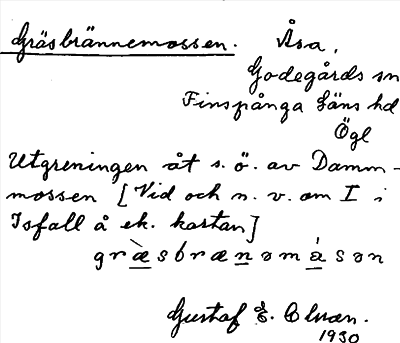 Gräsbrännemossen. Åsa,
Godegårds sn
Finspånga läns hd
Ögl
Utgreningen åt s. ö. av Damm-
mossen [Vid och n. v. om I i
Isfall å ek. kartan]
græ̀sbrænəmásən
Gustaf E.
1930